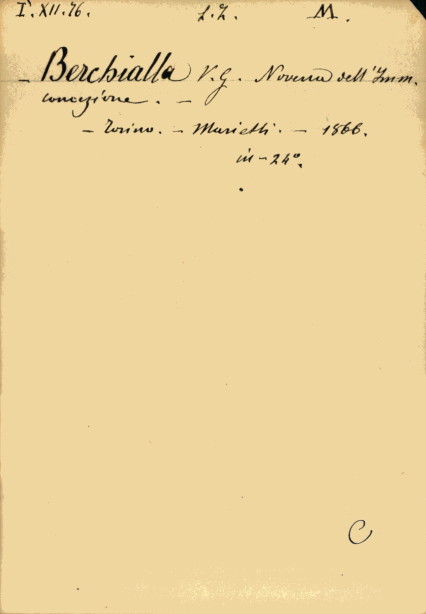 I. XII. 76. L. Z. M.
– Berchialla V. G. Novena dell'Imm.
concezione. –
– Torino. – Marietti. – 1866.
in–24°.
C